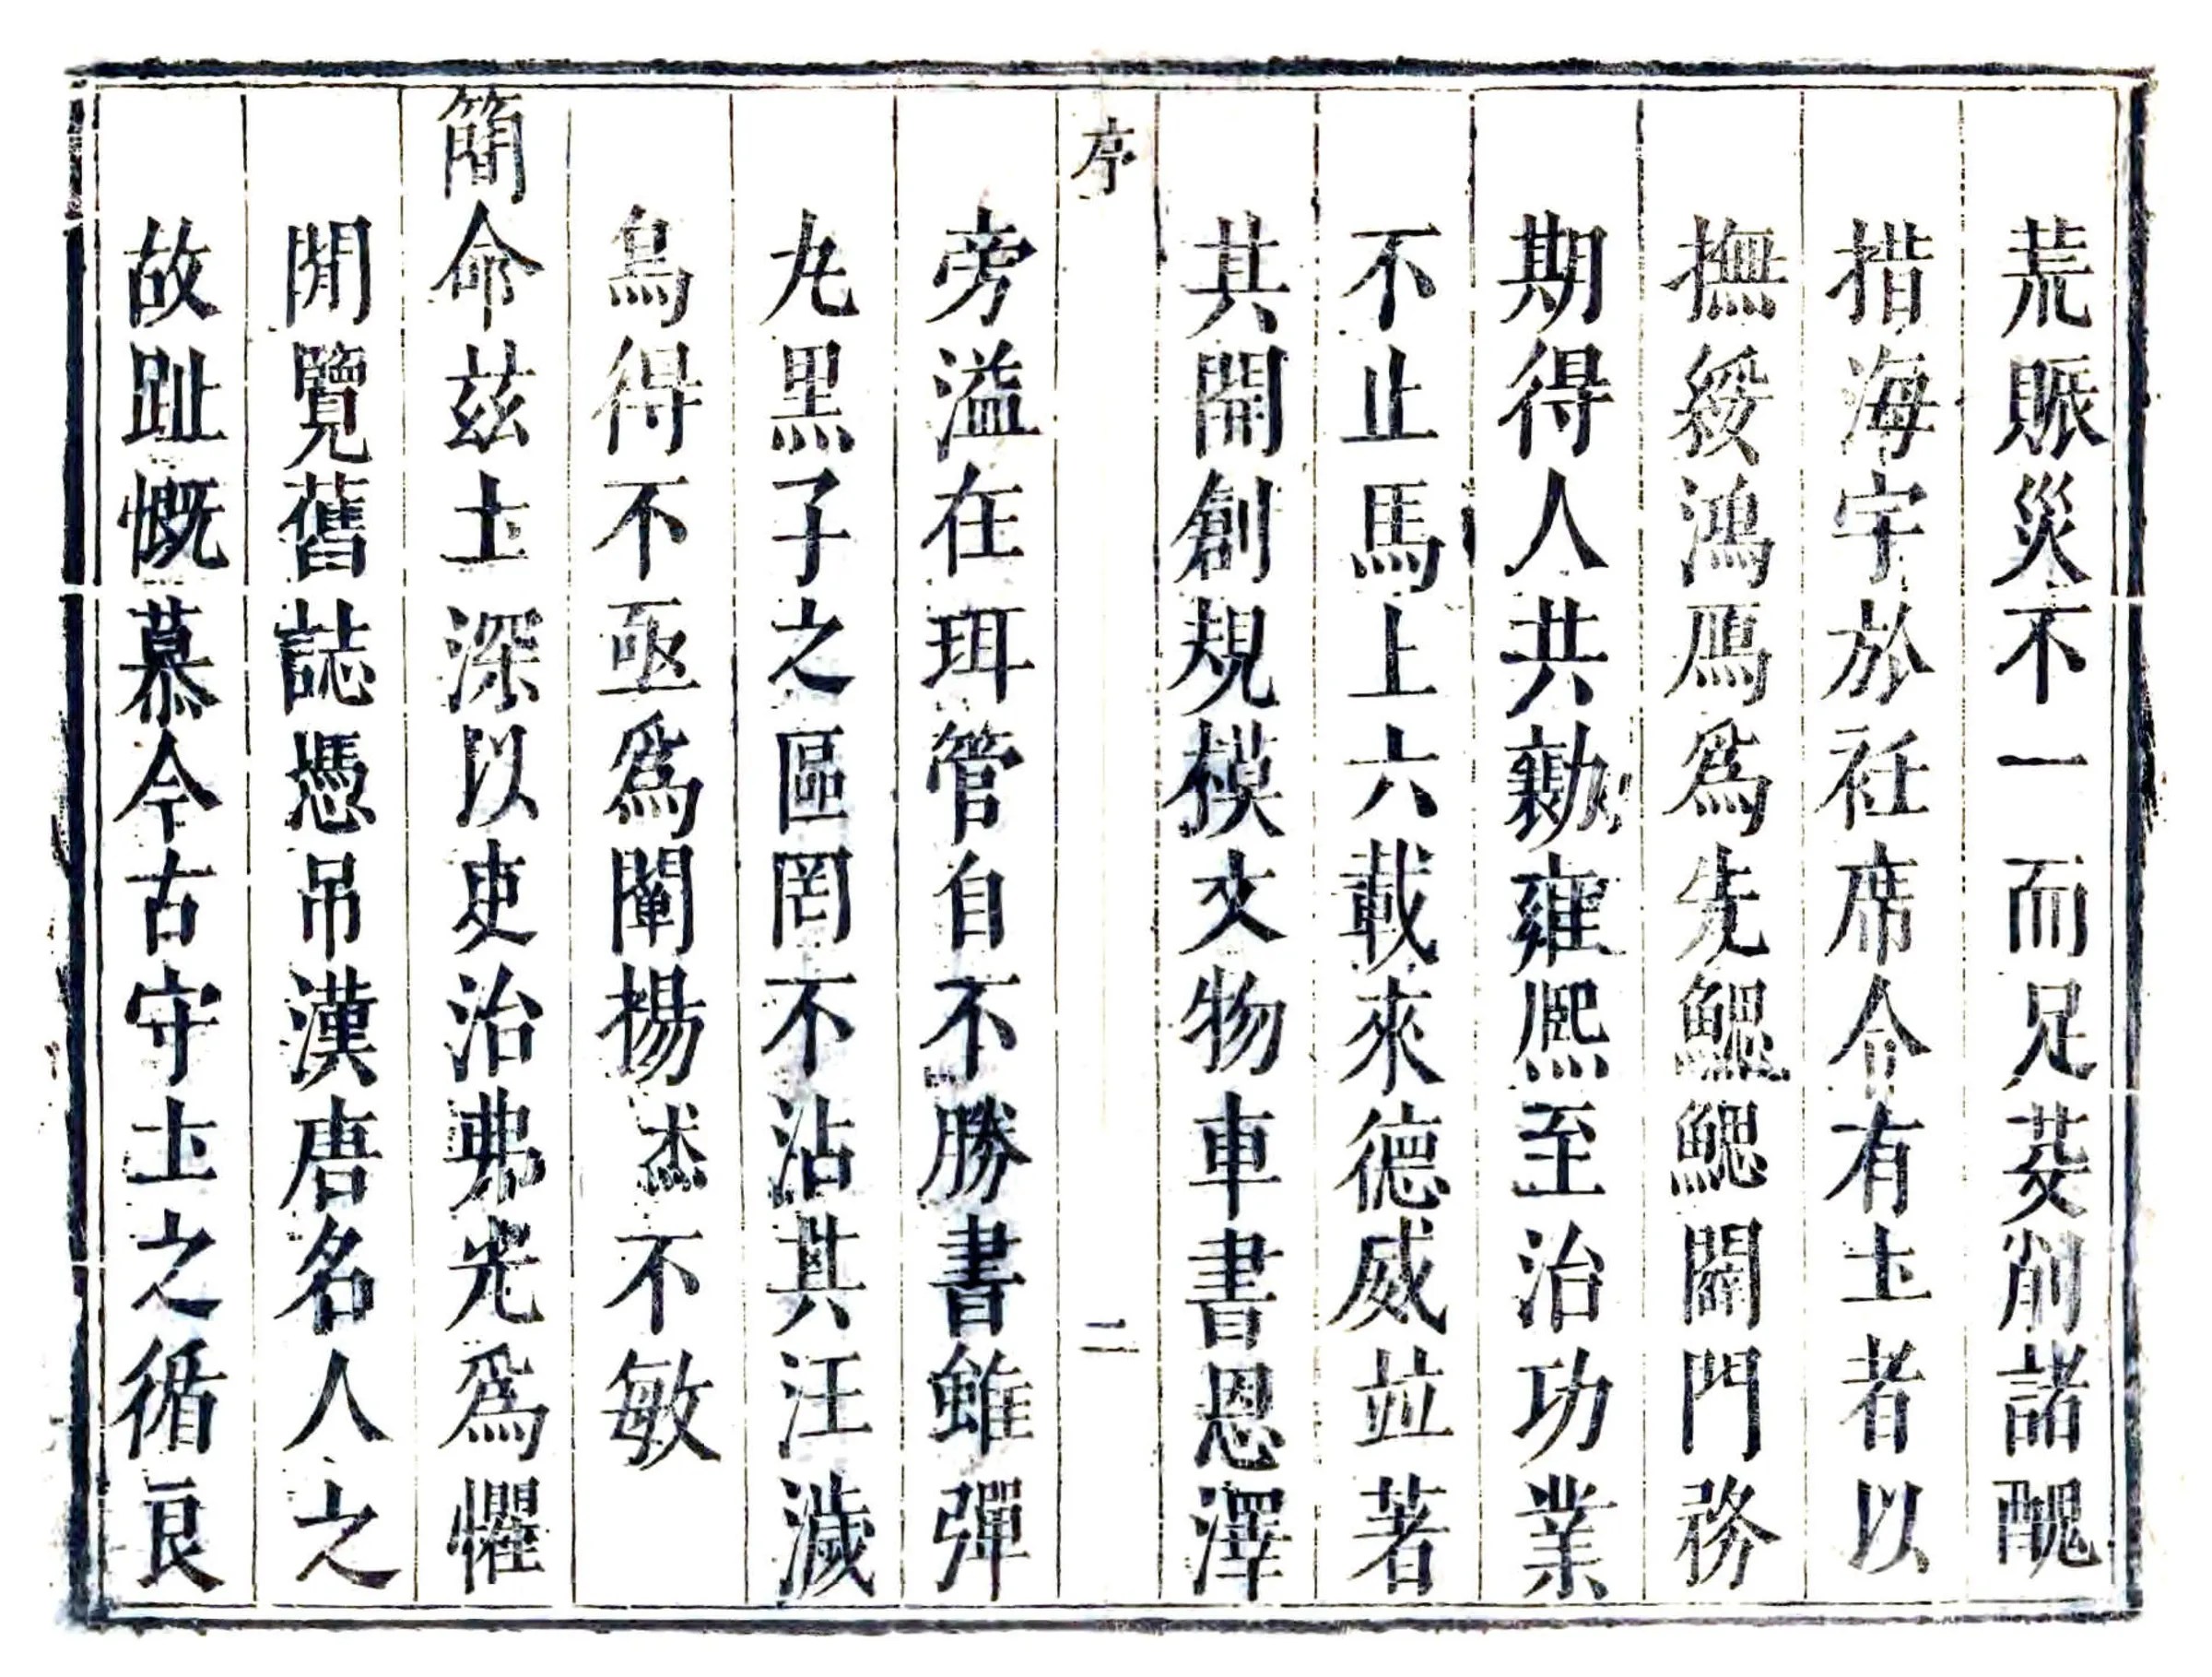 荒賑災不一而足芟削諸醜
措海宇於衽席令有土者以
撫綏鴻鴈爲先鰓鰓闢門務
期得人共勷雍熙至治功業
不止馬上六載來德威並著
其開創規模文物車書恩澤
序
二
旁溢在珥管自不勝書雖彈
丸黑子之區罔不沾其汪濊
烏得不亟爲闡揚杰不敏
簡命茲土深以吏治弗光爲懼
閒覽舊誌憑吊漢唐名人之
故趾慨慕今古守土之循良